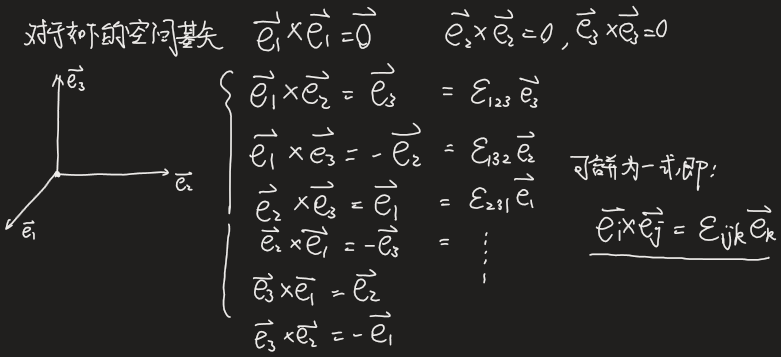 对于如下的空间基矢 $\vec{e_1}×\vec{e_1}=\vec{0}$ $\vec{e_2}×\vec{e_2}=0$, $\vec{e_3}×\vec{e_3}=0$
$\vec{e_3}$
$\vec{e_2}$
$\vec{e_1}$
$\vec{e_1}×\vec{e_2}=\vec{e_3}$ $=ε_{123}\vec{e_3}$
$\vec{e_1}×\vec{e_3}=-\vec{e_2}$ $=ε_{132}\vec{e_2}$
$\vec{e_2}×\vec{e_3}=\vec{e_1}$ $=ε_{231}\vec{e_1}$
$\vec{e_2}×\vec{e_1}=-\vec{e_3}$ = ⋮
$\vec{e_3}×\vec{e_1}=\vec{e_2}$
$\vec{e_3}×\vec{e_2}=-\vec{e_1}$
可合并为一式,即:
$\vec{e_i}×\vec{e_j}=ε_{ijk}\vec{e_k}$